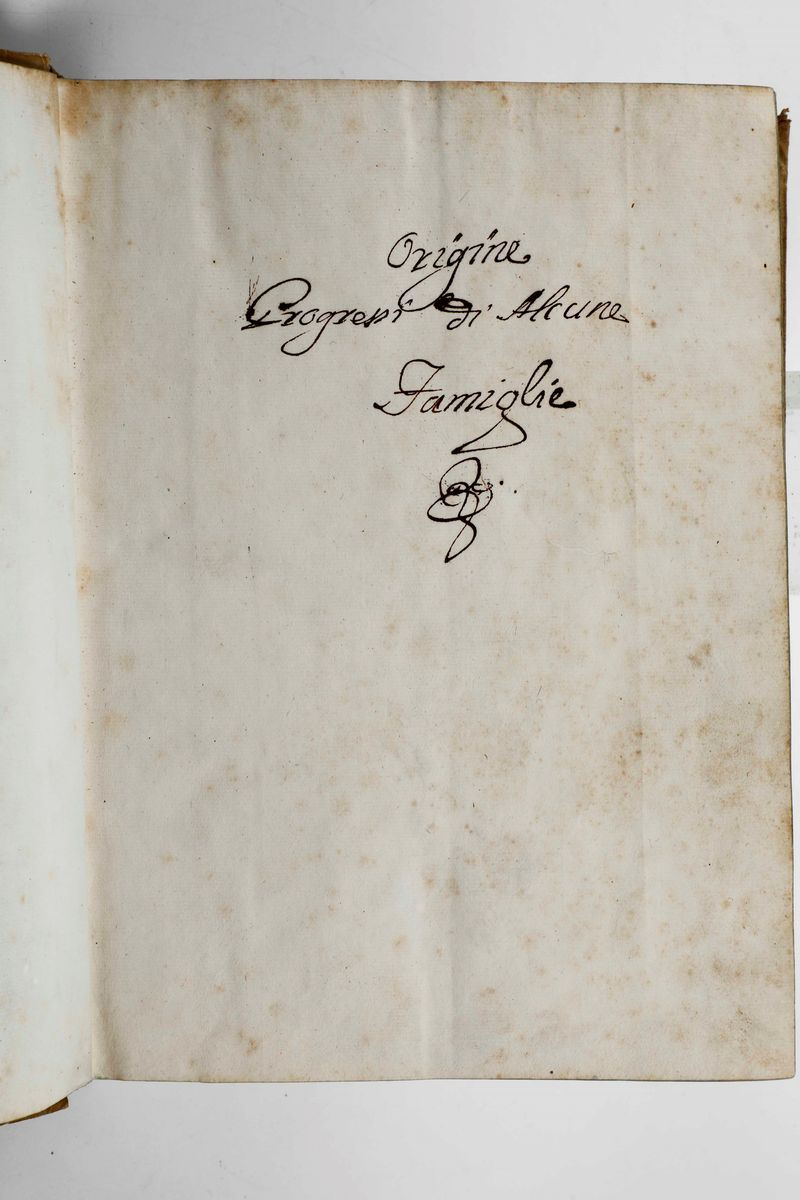 Origine
Progressi di Alcune
Famiglie